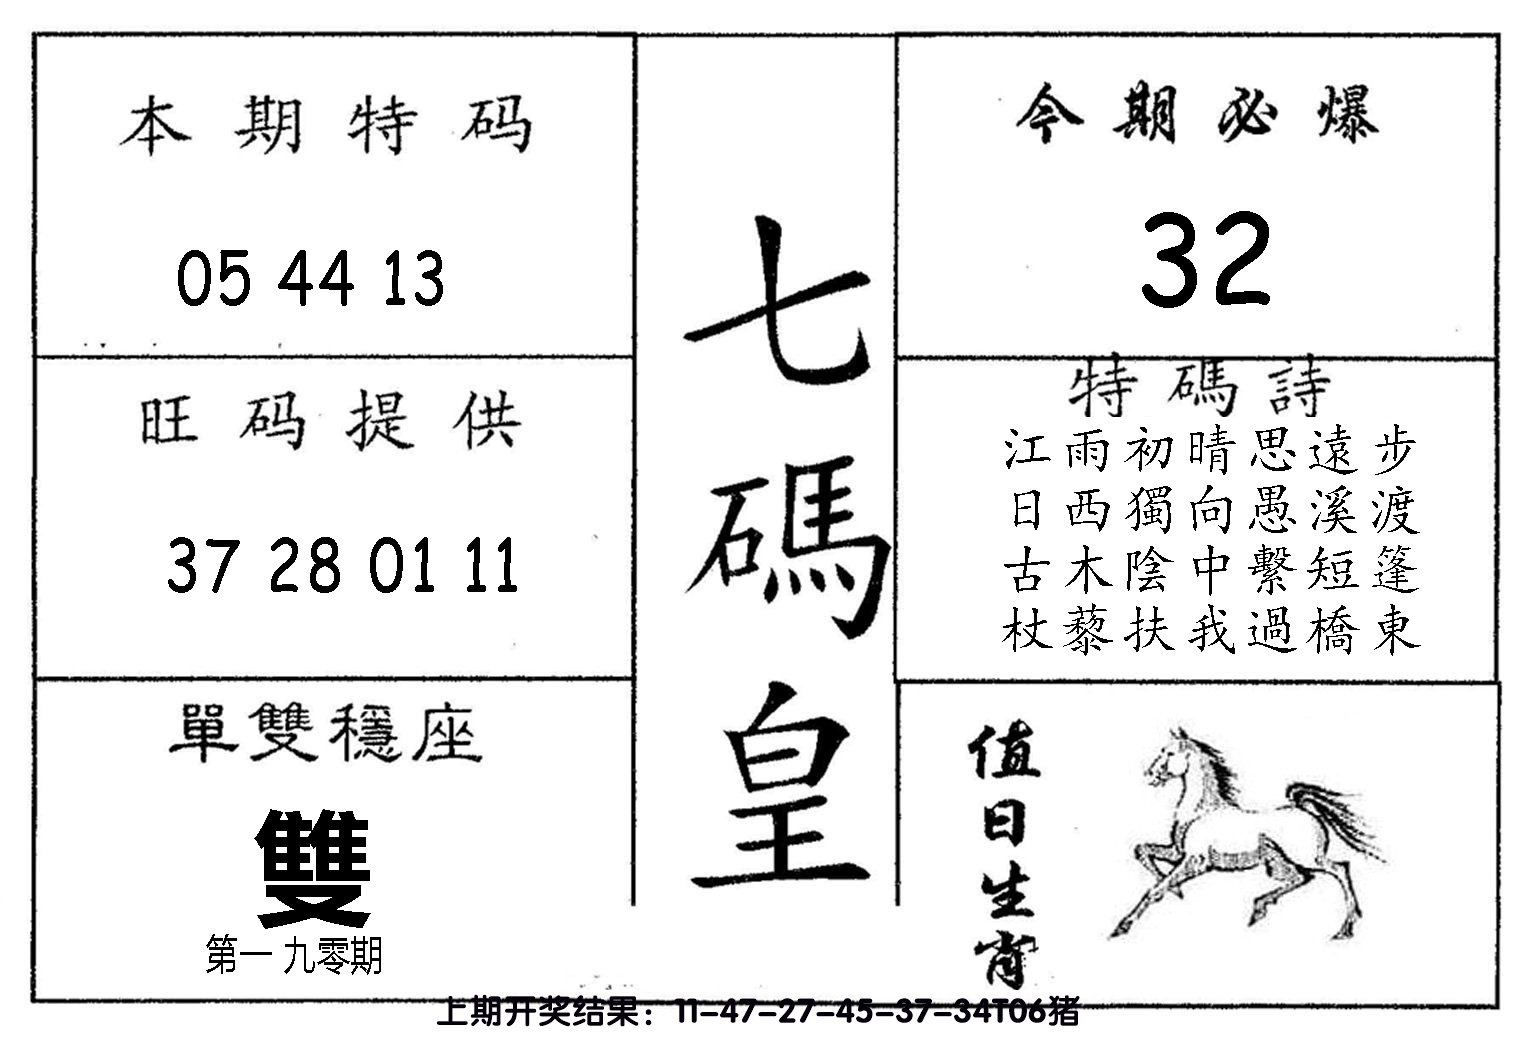 本期特码
05 44 13
旺码提供
37 28 01 11
單雙穩座
雙
第一九零期
七碼皇
今期必爆
32
特碼詩
江雨初晴思遠步
日西獨向愚溪渡
古木陰中繫短篷
杖藜扶我過橋東
值日生肖
上期开奖结果：11-47-27-45-37-34T06猪